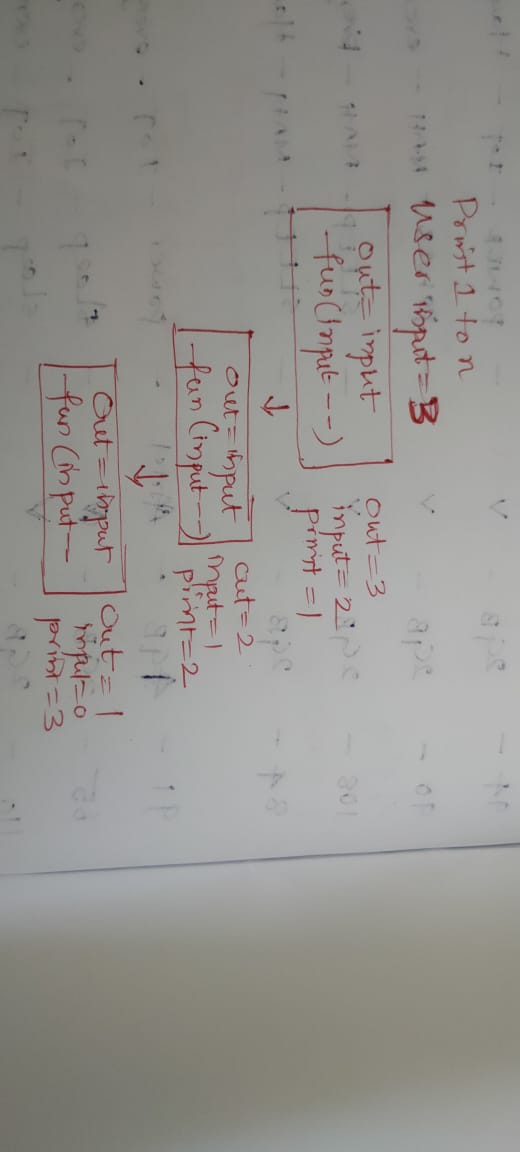 Print 1 to n
User input = 3
out = input
fun(input--)
out = 3
input = 2
print = 1
out = input
fun(input--)
out = 2
input = 1
print = 2
out = input
fun(input--
out = 1
input = 0
print = 3